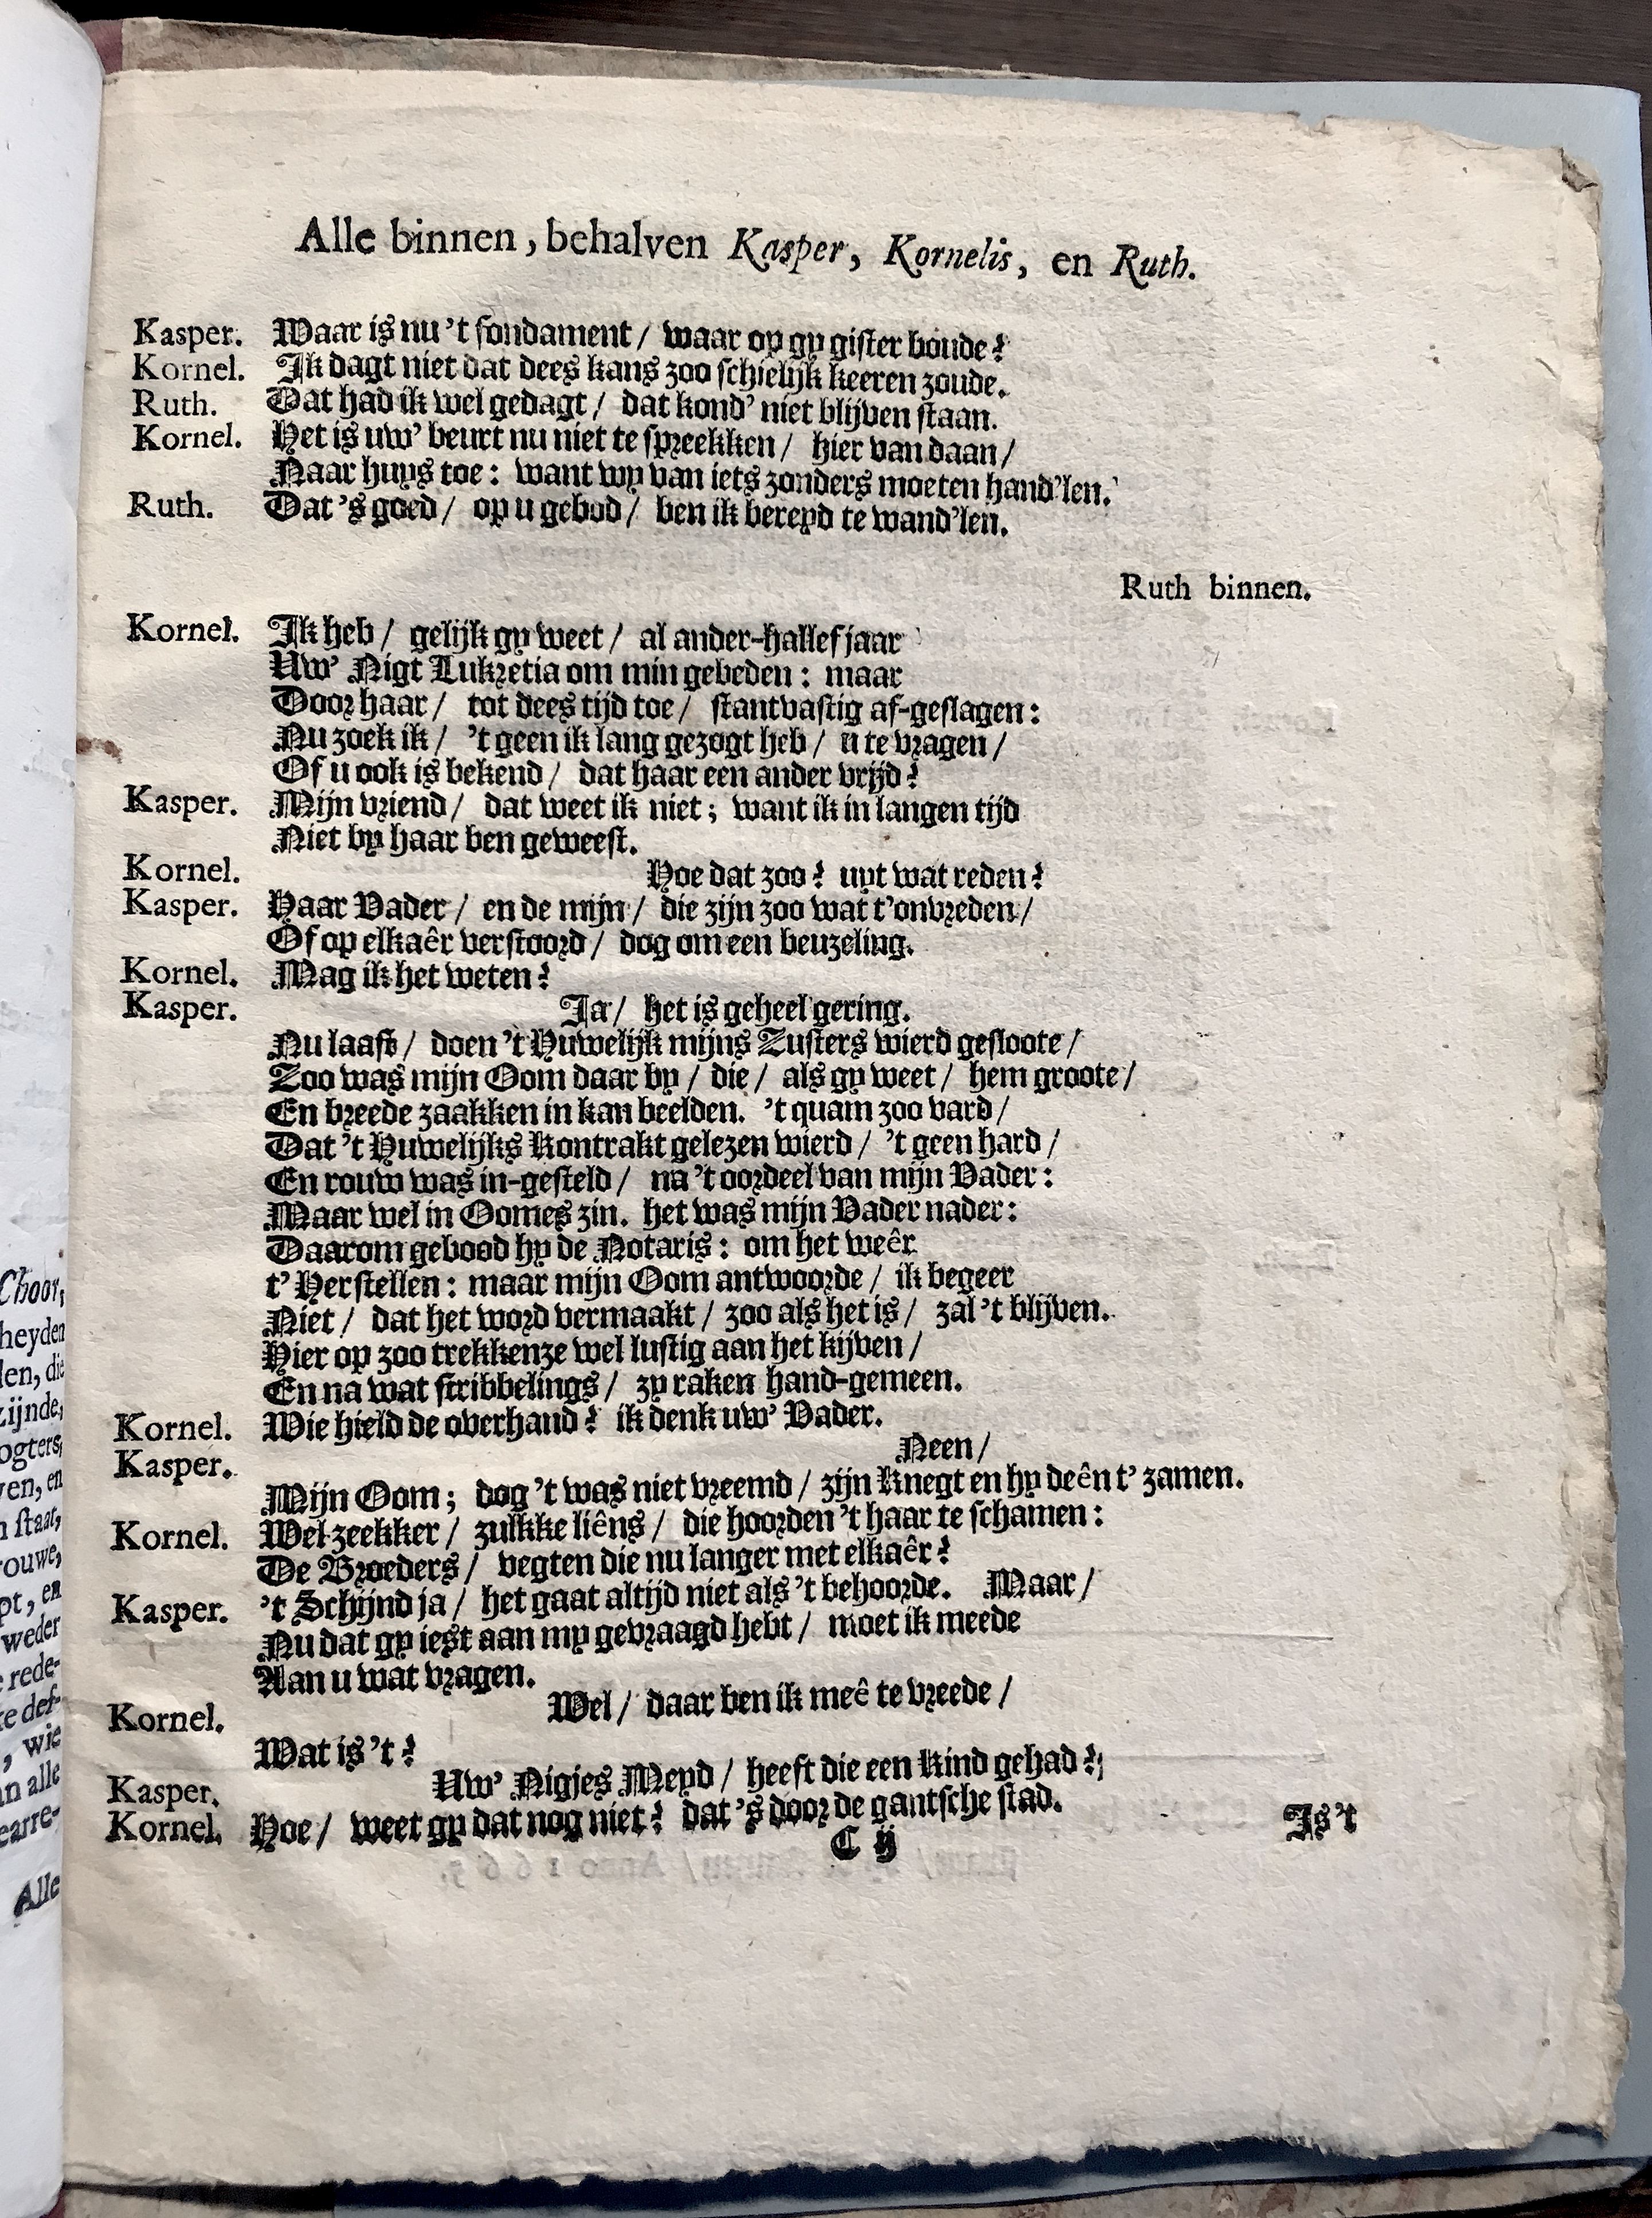 Alle binnen, behalven Kasper, Kornelis, en Ruth.
Kasper. Waar is nu 't fondament / waar op gy gister boude?
Kornel. Ik dagt niet dat dees kans zoo schielijk keeren zoude.
Ruth. Dat had ik wel gedagt / dat kond' niet blijven staan.
Kornel. Het is uw' beurt nu niet te spreekken / hier van daan /
Naar huys toe: want wy van iets zonders moeten hand'len.
Ruth. Dat 's goed / op u gebod / ben ik bereyd te wand'len.
Ruth binnen.
Kornel. Ik heb / gelijk gy weet / al ander-hallef jaar
Uw' Nigt Lukretia om min gebeden: maar
Door haar / tot dees tijd toe / stantvastig af-geslagen:
Nu zoek ik / 't geen ik lang gezogt heb / u te vragen /
Of u ook is bekend / dat haar een ander vrijd?
Kasper. Mijn vriend / dat weet ik niet; want ik in langen tijd
Niet by haar ben geweest.
Kornel. Hoe dat zoo? uyt wat reden?
Kasper. Haar Vader / en de mijn / die zijn zoo wat t'onvreden /
Of op elkaêr verstoord / dog om een beuzeling.
Kornel. Mag ik het weten?
Kasper. Ja / het is geheel gering.
Nu laast / doen 't Huwelijk mijns Zusters wierd geslooote /
Zoo was mijn Oom daar by / die / als gy weet / hem groote /
En breede zaakken in kan beelden. 't quam zoo vard /
Dat 't Huwelijks Kontrakt gelezen wierd / 't geen hard /
En rouw was in-gesteld / na 't oordeel van mijn Vader:
Maar wel in Oomes zin. het was mijn Vader nader:
Daarom gebood hy de Notaris: om het weêr
t' Herstellen: maar mijn Oom antwoorde / ik begeer
Niet / dat het word vermaakt / zoo als het is / zal 't blijven.
Hier op zoo trekkenze wel lustig aan het kijven /
En na wat scribbelings / zy raken hand-gemeen.
Kornel. Wie hield de overhand? ik denk uw' Vader.
Kasper. Neen /
Mijn Oom; dog 't was niet vreemd / zijn Knegt en hy deên t' zamen.
Kornel. Wel zeekker / zulkke liêns / die hoorden 't haar te schamen:
De Broeders / vegten die nu langer met elkaêr?
Kasper. 't Schijnd ja / het gaat altijd niet als 't behoorde. Maar /
Nu dat gy iest aan my gevraagd hebt / moet ik meede
Aan u wat vragen.
Kornel. Wel / daar ben ik meê te vreede /
Wat is 't?
Kasper. Uw' Nigjes Meyd / heeft die een kind gehad?
Kornel. Hoe / weet gy dat nog niet? dat 's door de gantsche stad.
C ij Is 't
Choor,
heyden
len, die
zijnde,
ogters,
ven, en
n staat,
rouwe,
pt, en
weder
e rede-
ke def-
, wie
an alle
earre-
Alle